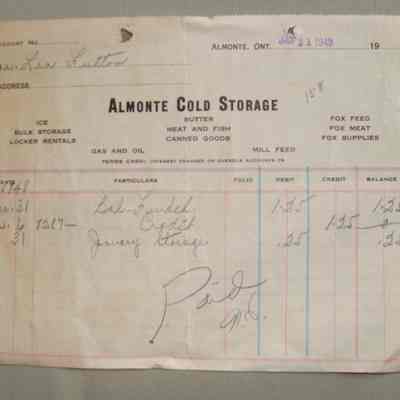 ACCOUNT No.
ALMONTE, ONT. JAN 31 1949 19
Lea Sutton
ADDRESS
ALMONTE COLD STORAGE
ICE
BULK STORAGE
LOCKER RENTALS
BUTTER
MEAT AND FISH
CANNED GOODS
FOX FEED
FOX MEAT
FOX SUPPLIES
GAS AND OIL MILL FEED
TERMS CASH: INTEREST CHARGED ON OVERDUE ACCOUNTS
PARTICULARS FOLIO DEBIT CREDIT BALANCE
1948
31 Bal. 1.25 1.25
6 Credit 1.25 0
31 January Storage .25 .25
Paid